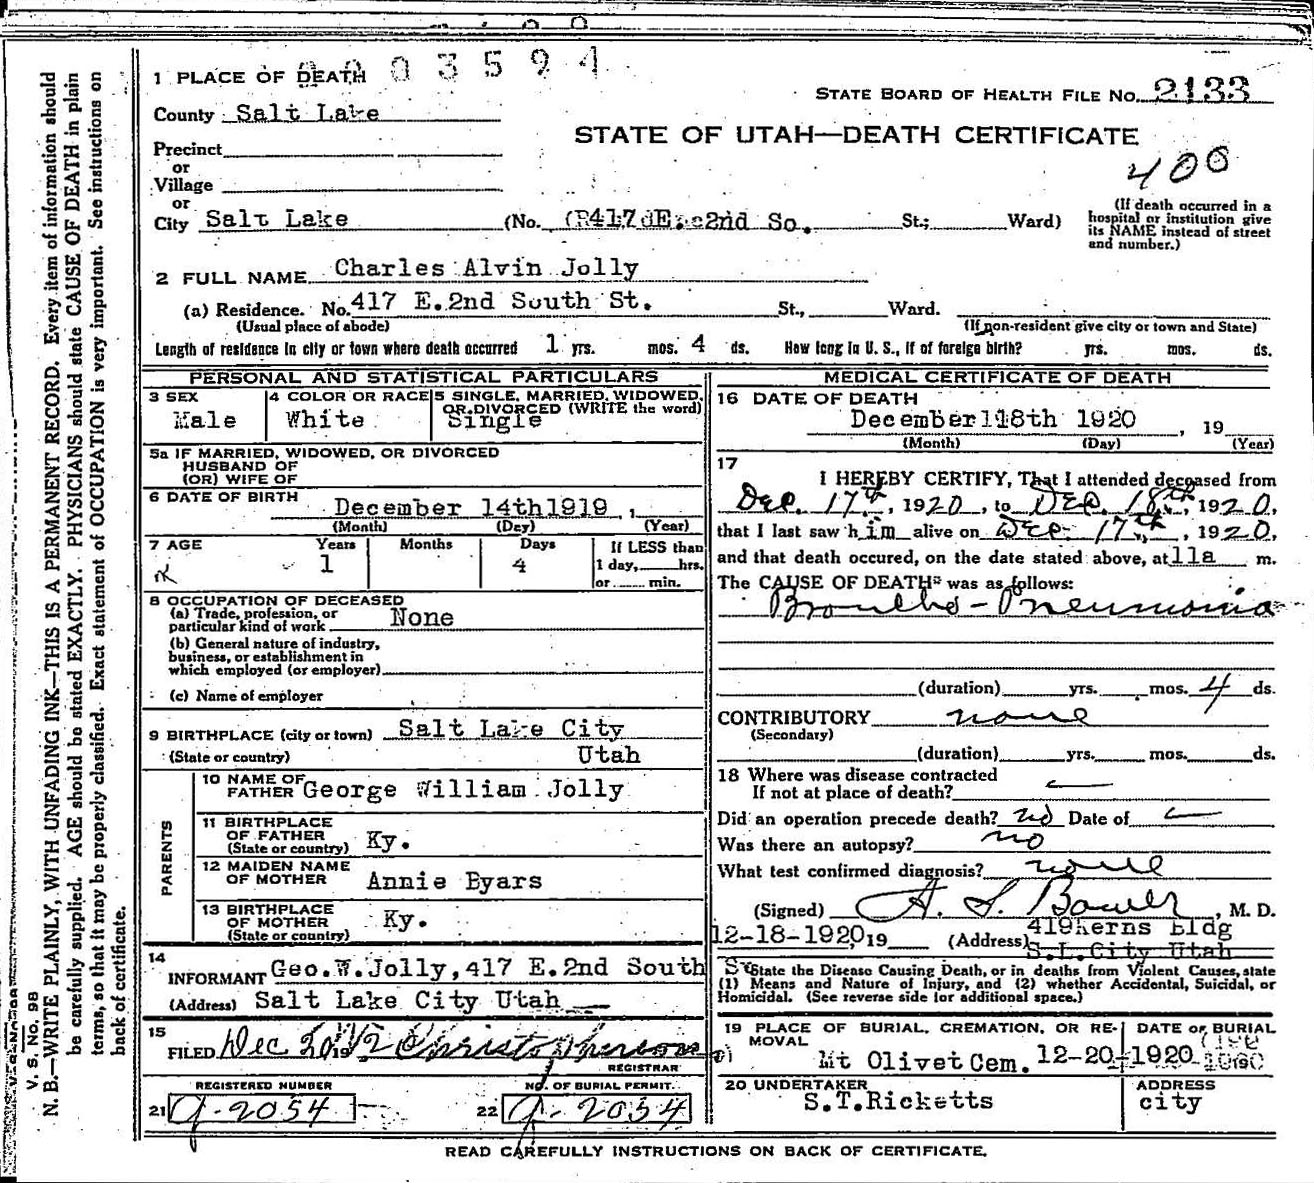 0003594
1 PLACE OF DEATH
STATE BOARD OF HEALTH FILE NO. 2133
County Salt Lake
STATE OF UTAH—DEATH CERTIFICATE
Precinct
or
Village
400
or
City Salt Lake (No. 417 E. 2nd So. St.; Ward)
(If death occurred in a
hospital or institution give
its NAME instead of street
and number.)
2 FULL NAME Charles Alvin Jolly
(a) Residence. No. 417 E.2nd South St. St., Ward.
(Usual place of abode) (If non-resident give city or town and State)
Length of residence in city or town where death occurred 1 yrs. mos. 4 ds. How long in U. S., if of foreign birth? yrs. mos. ds.
PERSONAL AND STATISTICAL PARTICULARS
3 SEX Male
4 COLOR OR RACE White
5 SINGLE, MARRIED, WIDOWED,
OR DIVORCED (WRITE the word)
Single
5a IF MARRIED, WIDOWED, OR DIVORCED
HUSBAND OF
(OR) WIFE OF
6 DATE OF BIRTH December 14th1919 ,
(Month) (Day) (Year)
7 AGE Years Months Days If LESS than
1 4 1 day, hrs.
or min.
8 OCCUPATION OF DECEASED
(a) Trade, profession, or
particular kind of work None
(b) General nature of industry,
business, or establishment in
which employed (or employer)
(c) Name of employer
9 BIRTHPLACE (city or town) Salt Lake City
(State or country) Utah
PARENTS
10 NAME OF
FATHER George William Jolly
11 BIRTHPLACE
OF FATHER
(State or country) Ky.
12 MAIDEN NAME
OF MOTHER Annie Byars
13 BIRTHPLACE
OF MOTHER
(State or country) Ky.
14
INFORMANT Geo.W.Jolly,417 E.2nd South
(Address) Salt Lake City Utah
15
FILED Dec 20 Christopherson
REGISTRAR
REGISTERED NUMBER NO. OF BURIAL PERMIT.
21 J-2054 22 J-2054
MEDICAL CERTIFICATE OF DEATH
16 DATE OF DEATH
December 18th 1920 , 19
(Month) (Day) (Year)
17
I HEREBY CERTIFY, That I attended deceased from
Dec. 17th, 1920, to Dec. 18th, 1920,
that I last saw him alive on Dec. 17th, 1920,
and that death occured, on the date stated above, at 11a m.
The CAUSE OF DEATH* was as follows:
Broncho-Pneumonia
(duration) yrs. mos. 4 ds.
CONTRIBUTORY none
(Secondary)
(duration) yrs. mos. ds.
18 Where was disease contracted
If not at place of death?
Did an operation precede death? no Date of
Was there an autopsy? no
What test confirmed diagnosis? none
(Signed) A. S. Bower, M. D.
12-18-1920, 19 (Address) 419Kerns Bldg
S.L.City Utah
State the Disease Causing Death, or in deaths from Violent Causes, state
(1) Means and Nature of Injury, and (2) whether Accidental, Suicidal, or
Homicidal. (See reverse side for additional space.)
19 PLACE OF BURIAL, CREMATION, OR RE-
MOVAL
Mt Olivet Cem.
DATE OF BURIAL
12-20-1920
20 UNDERTAKER
S.T.Ricketts
ADDRESS
city
READ CAREFULLY INSTRUCTIONS ON BACK OF CERTIFICATE.
V. S. No. 98
N. B.—WRITE PLAINLY, WITH UNFADING INK—THIS IS A PERMANENT RECORD. Every item of information should
be carefully supplied. AGE should be stated EXACTLY. PHYSICIANS should state CAUSE OF DEATH in plain
terms, so that it may be properly classified. Exact statement of OCCUPATION is very important. See instructions on
back of certificate.